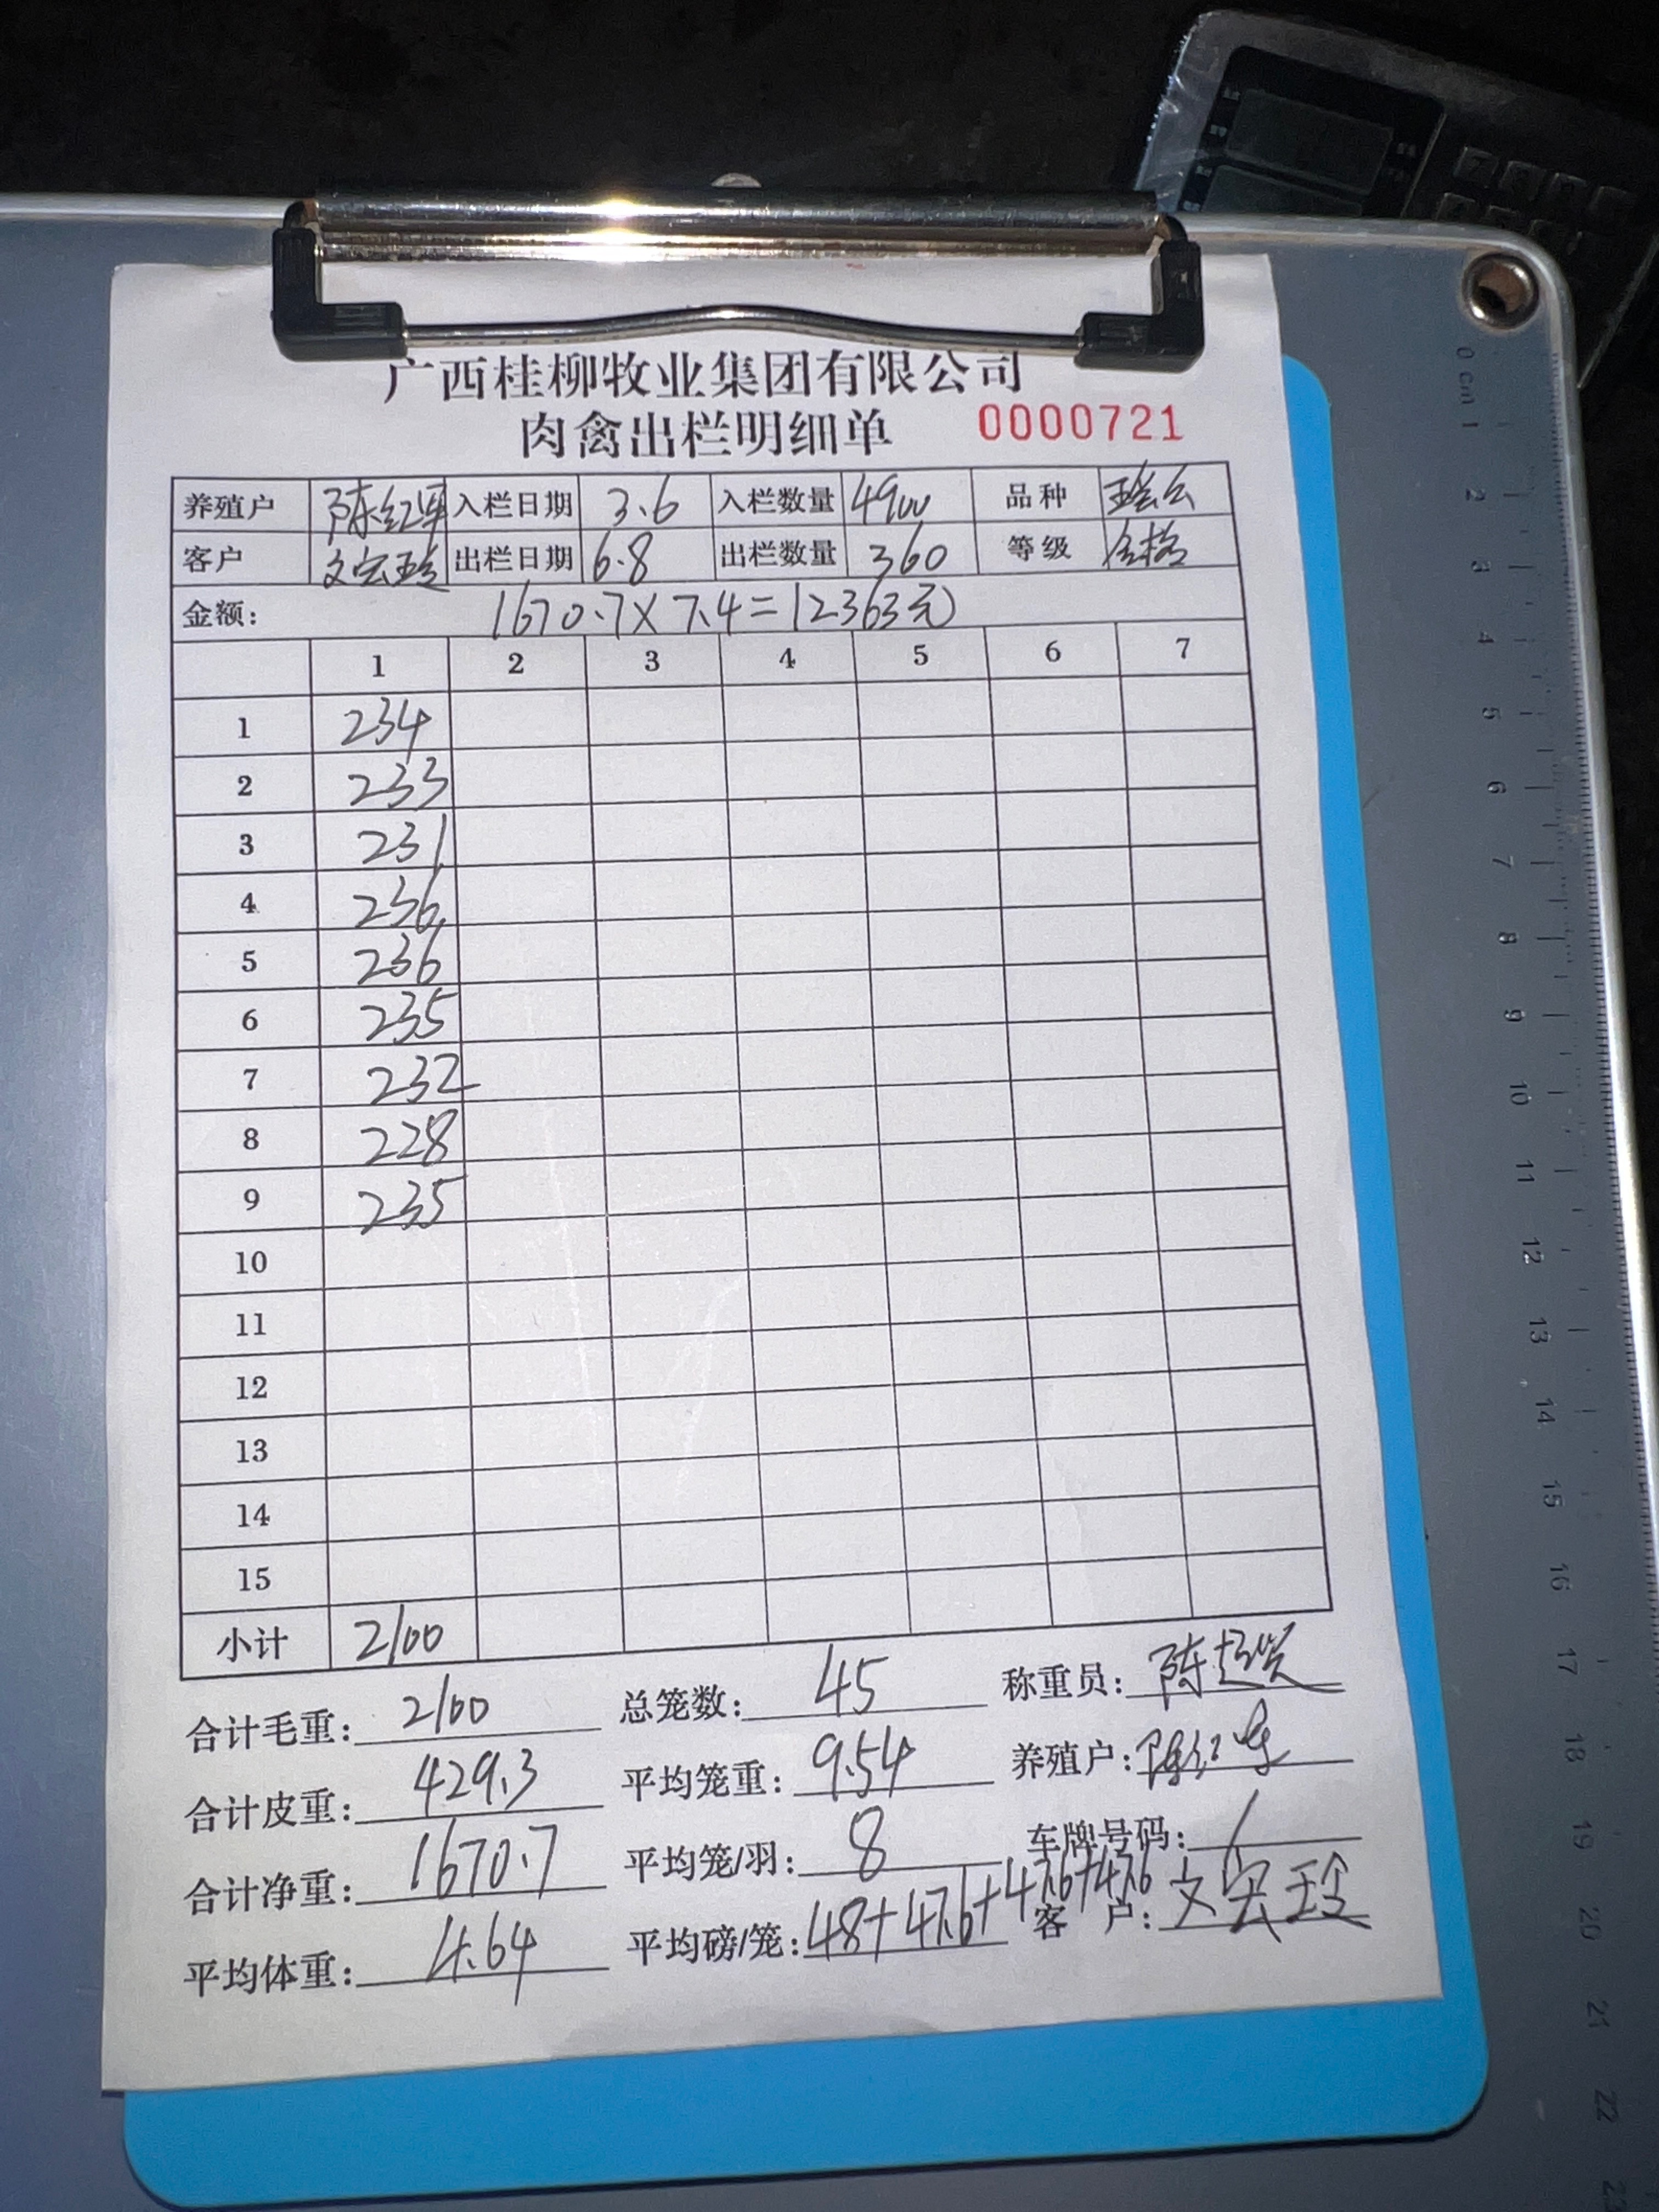 广西桂柳牧业集团有限公司
肉禽出栏明细单 0000721
养殖户 陈红军 入栏日期 3.6 入栏数量 4900 品种
客户 文宏玲 出栏日期 6.8 出栏数量 360 等级 合格
金额: 1670.7×7.4=12363元
1 2 3 4 5 6 7
1 234
2 233
3 231
4 236
5 236
6 235
7 232
8 228
9 235
10
11
12
13
14
15
小计 2100
合计毛重: 2100 总笼数: 45 称重员: 陈
合计皮重: 429.3 平均笼重: 9.54 养殖户: 陈红军
合计净重: 1670.7 平均笼/羽: 8 车牌号码: /
平均体重: 4.64 平均磅/笼: 48+47.6+47.6+47.6 客 户: 文宏玲
0 cm 1
2
3
4
5
6
7
8
9
10
11
12
13
14
15
16
17
18
19
20
21
22